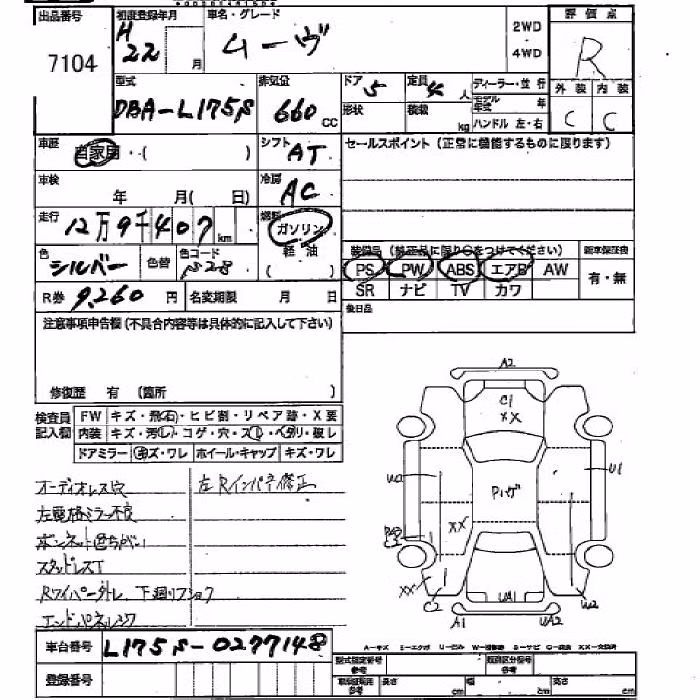 出品番号 初度登録年月 車名・グレード 2WD ・ 4WD 評価点
7104 H22 月 ムーヴ R
型式 排気量 ドア 5 定員 4 人 ディーラー・並行 外装 内装
DBA-L175S 660 CC 形状 積載 kg モデル年式 年 C C
ハンドル 左・右
車歴 自家用・( ) シフト AT セールスポイント(正常に機能するものに限ります)
車検 年 月( 日) 冷房 AC
走行 12万9千407 km 燃料 ガソリン
色 シルバー 色替 色コード S28 軽油 装備品(純正品に限り○をつけてください) 新車保証書
PS PW ABS エアB AW 有・無
R券 9,260 円 名変期限 月 日 SR ナビ TV カワ
注意事項申告欄(不具合内容等は具体的に記入して下さい) 後日品
修復歴 有 (箇所 )
検査員記入欄 FW キズ・飛石・ヒビ割・リペア跡・X要
内装 キズ・汚れ・コゲ・穴・スレ・ヘタリ・破レ
ドアミラー キズ・ワレ ホイール・キャップ キズ・ワレ
オーディオレス穴 左Rインパネ修正
左電格ミラー不良
ボンネット色ちがい
スタッドレスT
Rワイパー外し 下廻りフショク
エンドパネルコウカン
A2
C1
XX
U2 Pルーフ U1
XX
XX
C2 UA1 W2
A1 UA2
車台番号 L175S-0277148
A-キズ E-エクボ U-凹ミ W-補修跡 S-サビ C-腐食 XX-交換済
登録番号 型式指定番号 参考 類別区分番号 参考
長さ cm 幅 cm 高さ cm